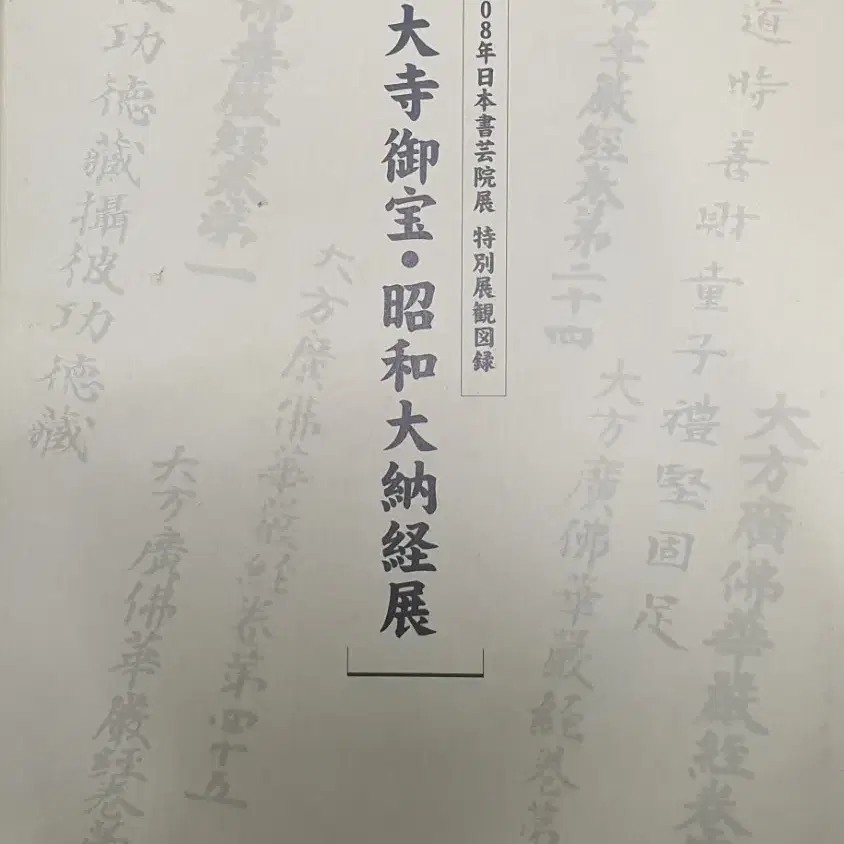 大方廣佛華嚴經卷
道時善財童子禮堅固足
大方廣佛華嚴經卷第
華嚴經卷第二十四
08年日本書芸院展 特別展観図録
大寺御宝・昭和大納経展
大方廣佛華嚴經卷第四十五
佛華嚴經卷第一
大方廣佛華嚴経卷第
功德藏攝彼功德藏